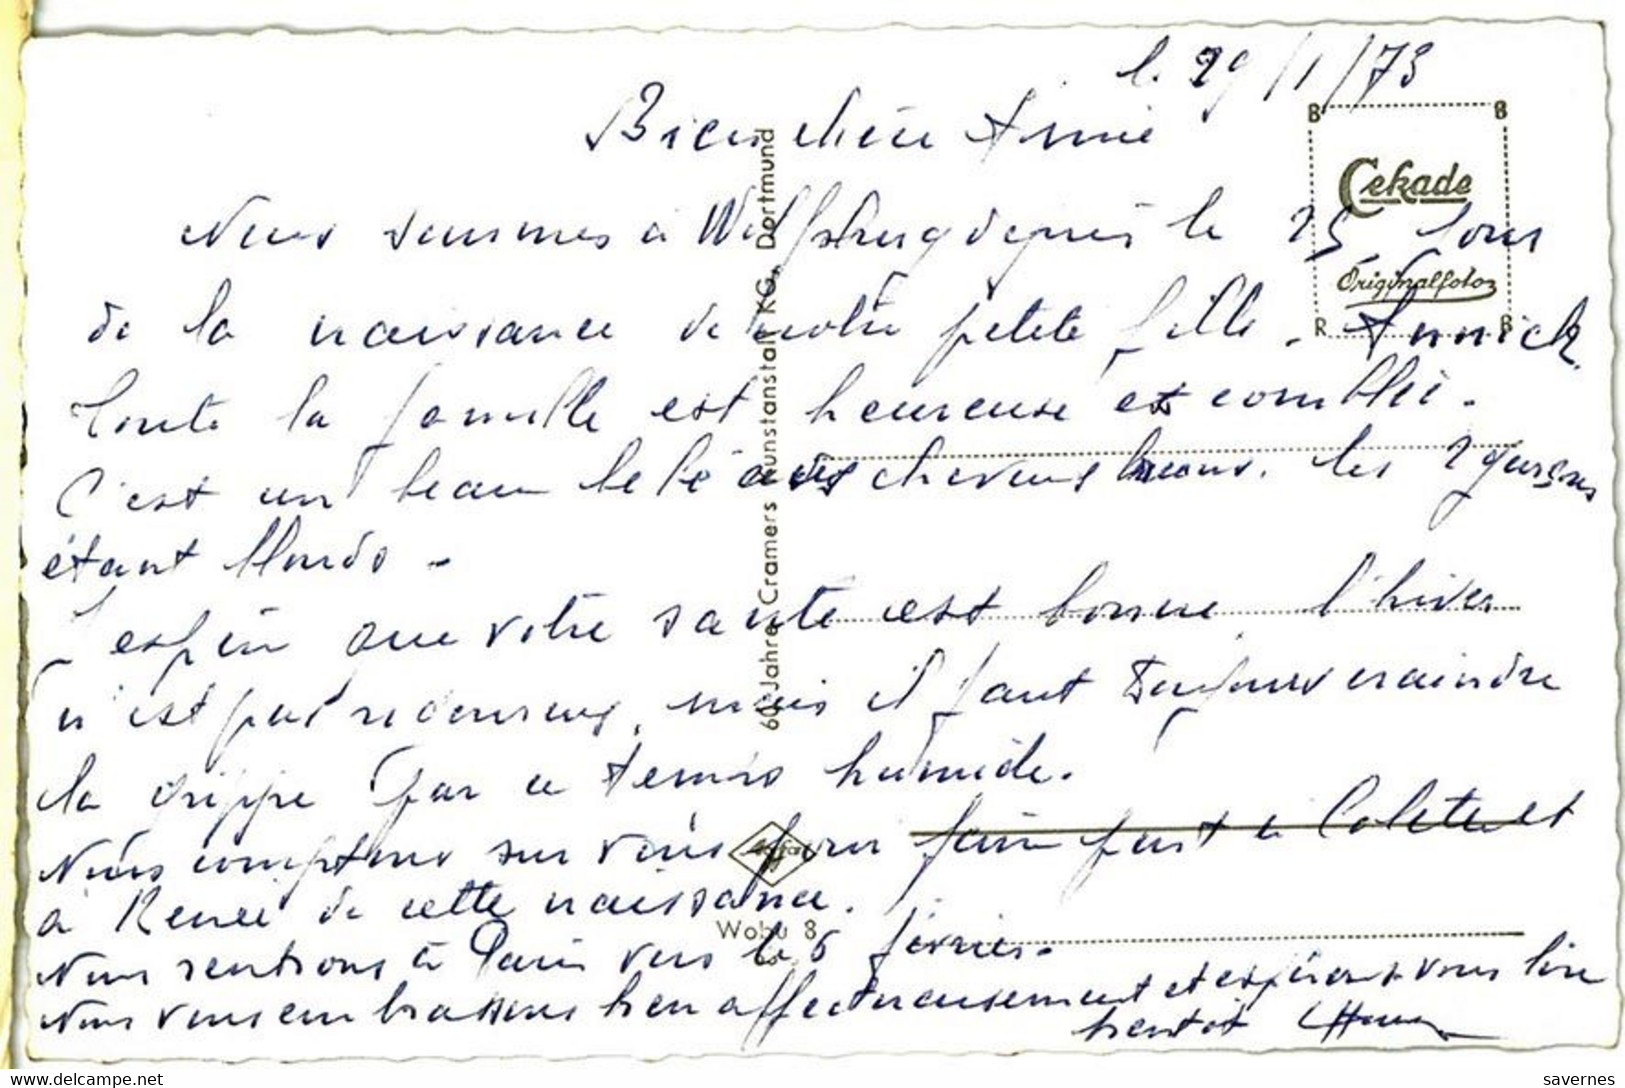 le 29/1/73
Bien chère Amie
Nous sommes à Wolfsburg depuis le 25 jour
de la naissance de notre petite fille. Annick
Toute la famille est heureuse et comblée.
C'est un beau bébé avec des cheveux bruns. les 2 garçons
étant blonds.
J'espère que votre santé est bonne l'hiver
n'est pas rigoureux, mais il faut toujours craindre
la grippe par ce temps humide.
Nous comptons sur vous pour faire part à Colette et
à Renée de cette naissance.
Nous rentrons à Paris vers le 6 février.
Nous vous embrassons bien affectueusement et espérons vous lire
bientôt
Cekade
Originalfoto
B B
R B
60 Jahre Cramers Kunstanstalt KG, Dortmund
Wobu 8
delcampe.net
savernes